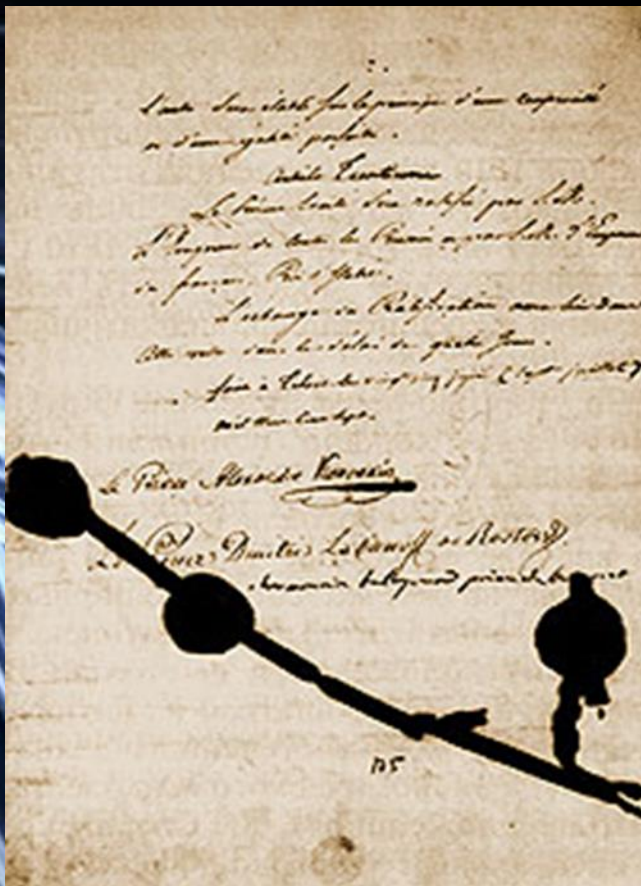 sera établi sur le principe d'une réciprocité
et d'une égalité parfaite.
Article
Le présent traité sera ratifié par S. M.
L'Empereur de toutes les Russies et par S. M. l'Empereur
des français, Roi d'Italie.
L'échange des Ratifications aura lieu dans
cette ville dans le délai de quatre jours.
fait à Tilsit le vingt cinq juin (sept juillet)
mil huit cent sept.
Le Prince Alexandre Kourakin
Le Prince Dmitri Labanoff de Rostoff.
maurice talleyrand prince de benevent